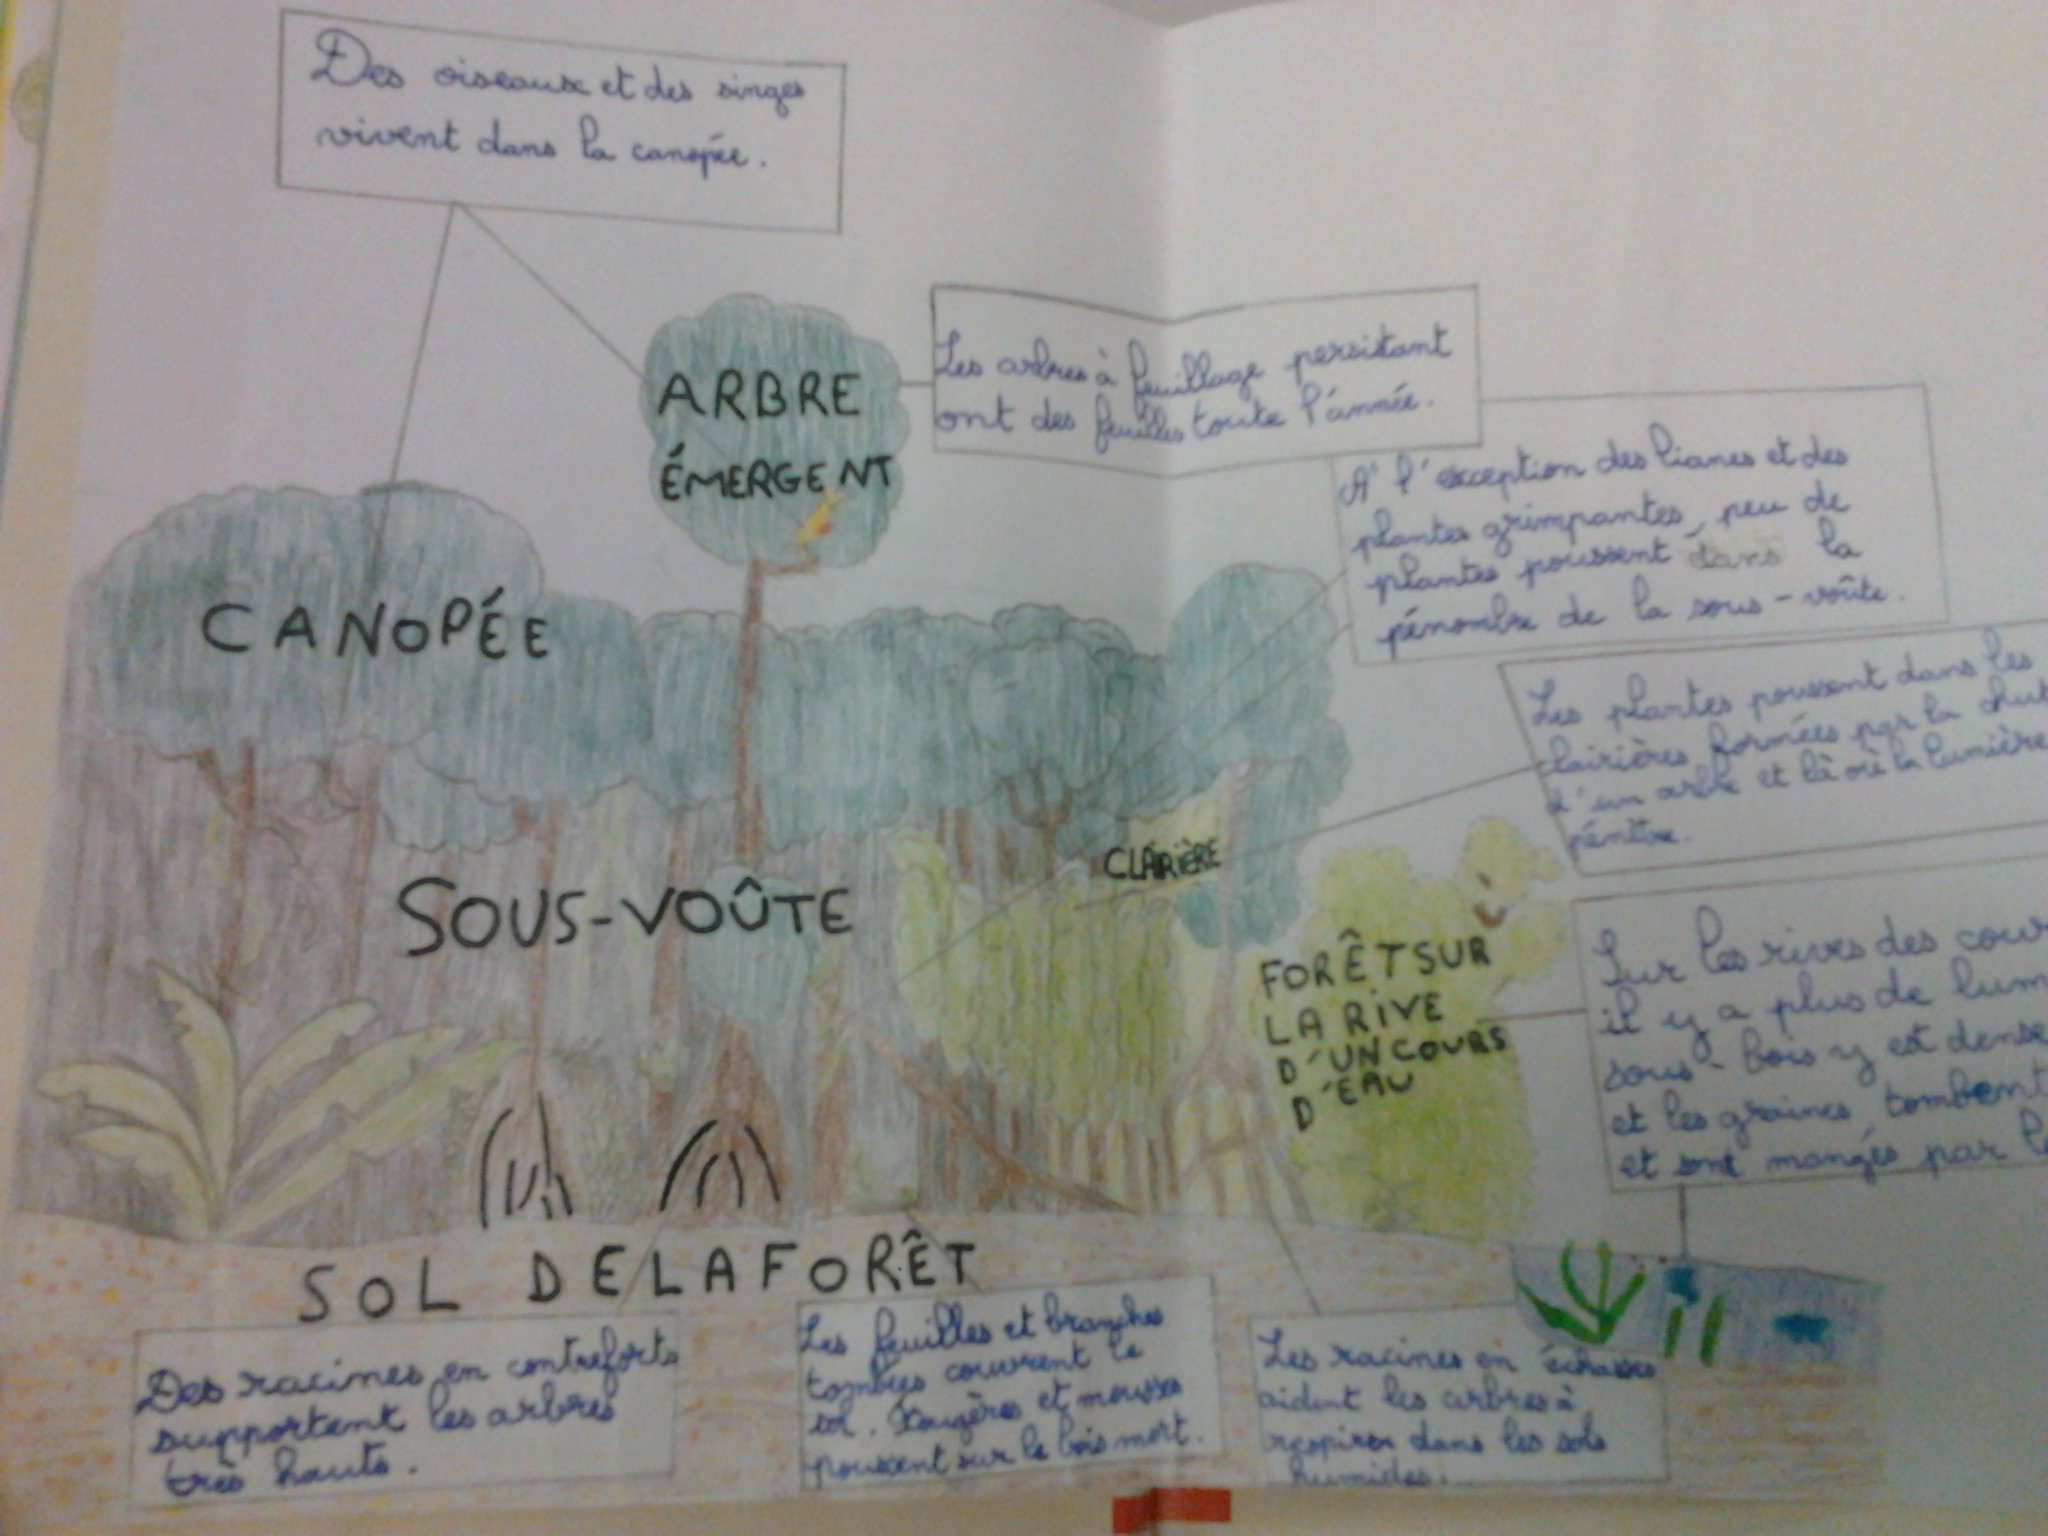 Des oiseaux et des singes
vivent dans la canopée.
ARBRE
ÉMERGENT
Les arbres à feuillage persistant
ont des feuilles toute l'année.
A l'exception des lianes et des
plantes grimpantes, peu de
plantes poussent dans la
pénombre de la sous-voûte.
CANOPÉE
Les plantes poussent dans les
clairières formées par la chut
d'un arbre et là où la lumière
pénètre.
CLAIRIÈRE
SOUS-VOÛTE
FORÊT SUR
LA RIVE
D'UN COURS
D'EAU
Sur les rives des cour
il y a plus de lum
sous-bois y est dense
et les graines tombent
et sont mangés par le
SOL DE LA FORÊT
Des racines en contreforts
supportent les arbres
très hauts.
Les feuilles et branches
tombées couvrent le
sol. Fougères et mousses
poussent sur le bois mort.
Les racines en échasses
aident les arbres à
respirer dans les sols
humides.